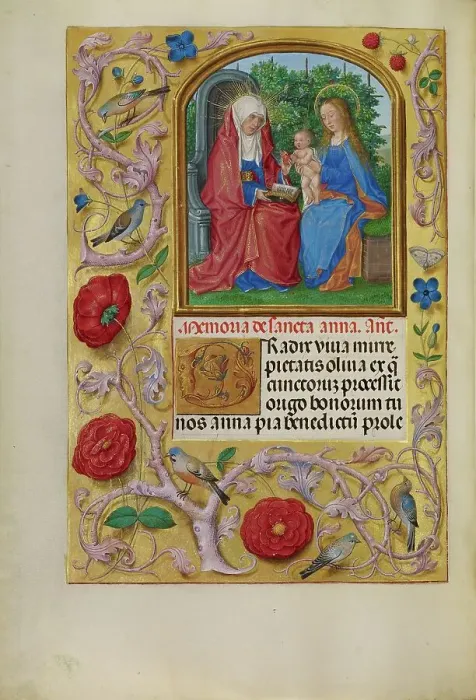 Memoria de sancta anna. Ant.
O Radix viua mire
pietatis oliua ex q̃
cunctorum processit
origo bonorum tu
nos anna pia benedictū prole